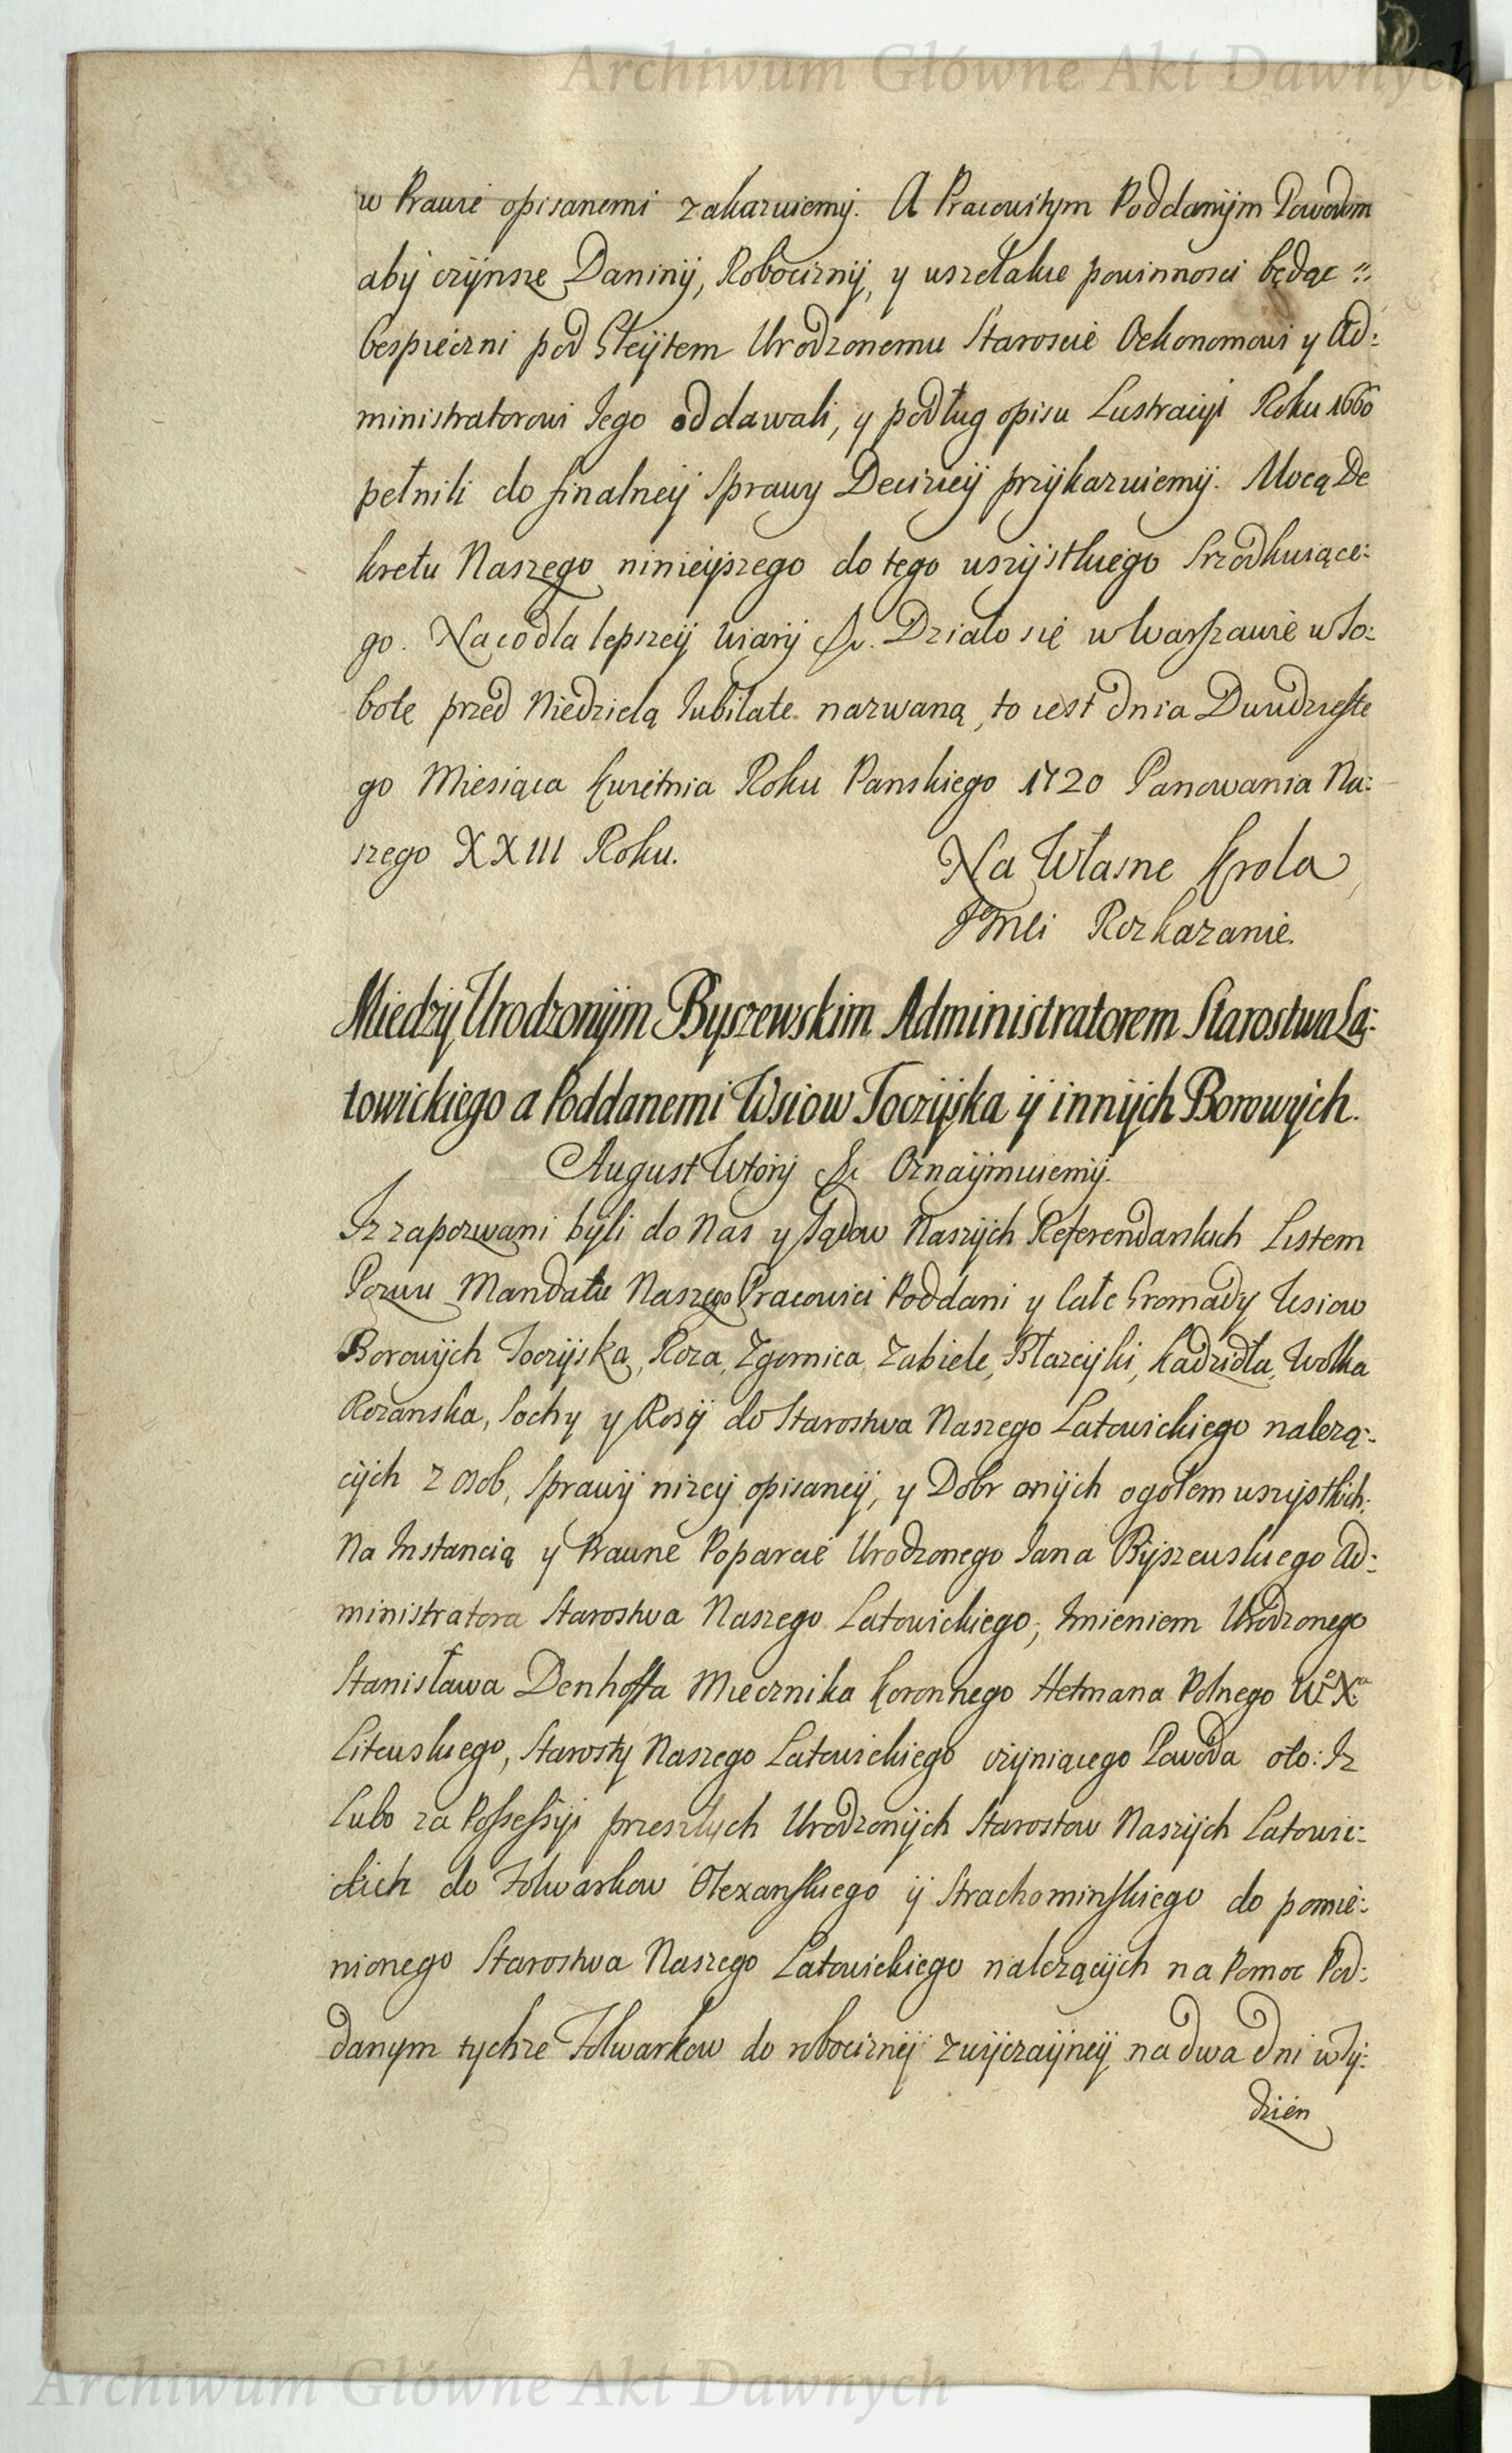 Archiwum Główne Akt Dawnych
w Prawie opisanemi zakazuiemy. A Pracowitym Poddanym Powodom
aby czynsze Daniny, Robocizny, y wszelakie powinnosci będąc
bespieczni pod Gleytem Urodzonemu Staroscie Oekonomowi y Ad:
ministratorowi Jego oddawali, y podług opisu Lustracyi Roku 1660
pełnili do finalney Sprawy Decizyey przykazuiemy. Mocą De
kretu Naszego ninieyszego do tego wszystkiego srzodkuiące:
go. Na co dla lepszey wiary &c. Działo się w Warszawie w So:
botę przed Niedzielą Jubilate nazwaną, to iest dnia Dwudzieste
go Miesiąca Kwietnia Roku Panskiego 1720 Panowania Na:
szego XXIII Roku.
Na Własne Krola
Jemći Rozkazanie.
Miedzy Urodzonym Byszewskim Administratorem Starostwa La:
towickiego a Poddanemi Wsiow Toczyska y innych Borowych.
August Wtóry &c Oznaymuiemy.
Iz zapozwani byli do Nas y Sądow Naszych Referendarskich Listem
Pozwu Mandatu Naszego Pracowici Poddani y całe Gromady Wsiow
Borowych Toczyska, Roza, Zgornica, Zabiele, Błazeyki, Kadzidła, Wolka
Rozanska, Sochy y Rosy do Starostwa Naszego Latowickiego nalezą:
cych z osob, Sprawy nizey opisaney, y Dobr onych ogołem wszystkich:
Na Instancią y Prawne Poparcie Urodzonego Jana Byszewskiego Ad:
ministratora Starostwa Naszego Latowickiego, Imieniem Urodzonego
Stanisława Denhoffa Miecznika Koronnego Hetmana Polnego Wº Xª
Litewskiego, Starosty Naszego Latowickiego czyniącego Powoda oto: Iz
Lubo za Possessyi przeszłych Urodzonych Starostow Naszych Latowic:
kich do Folwarkow Olexanskiego y Strachominskiego do pomie:
nionego Starostwa Naszego Latowickiego nalezących na Pomoc Pod:
danym tychze Folwarkow do robocizney zwyczayney na dwa dni w Ty:
dzień
Archiwum Główne Akt Dawnych